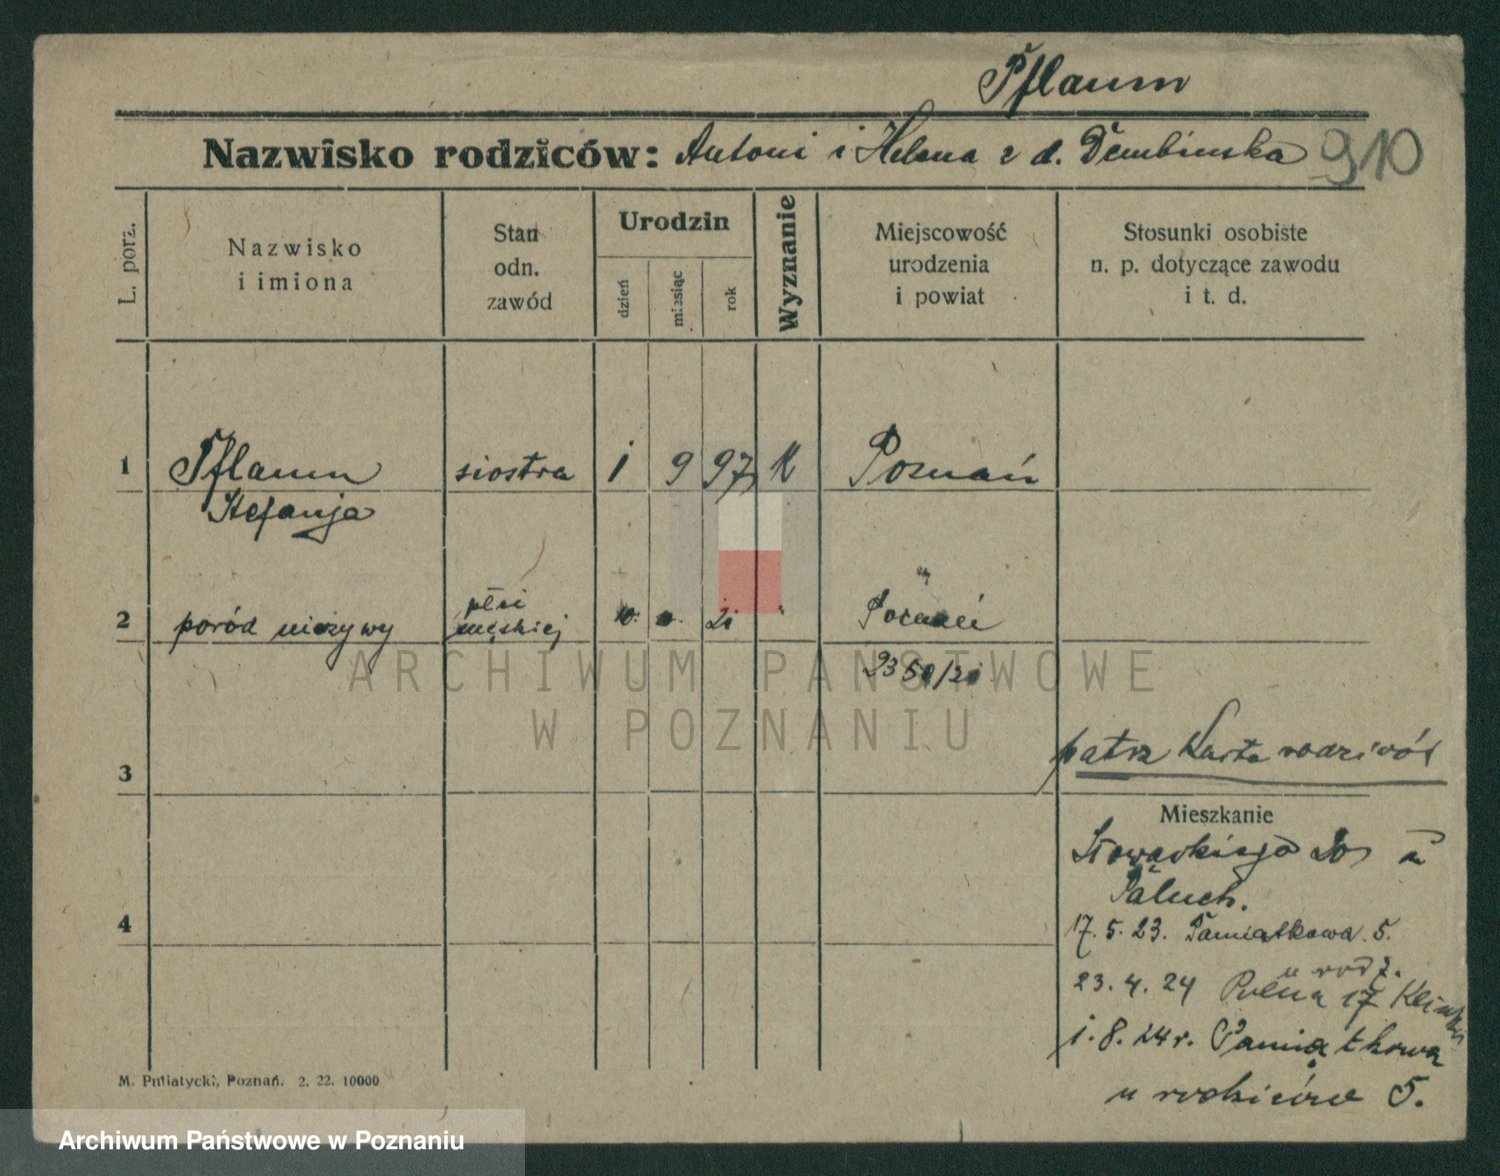 Pflaum
Nazwisko rodziców: Antoni i Helena z d. Dembinska 910
L. porz.
Nazwisko
i imiona
Stan
odn.
zawód
Urodzin
dzień
miesiąc
rok
Wyznanie
Miejscowość
urodzenia
i powiat
Stosunki osobiste
n. p. dotyczące zawodu
i t. d.
1 Pflaum siostra 1 9 97 K Poznań
Stefanja
2 poród nieżywy płci męskiej 10. 21 Poznań
2350/21
3 patrz Karta rodziców
Mieszkanie
Słowackiego u
Paluch.
4 17. 5. 23. Pamiątkowa 5.
u rodz.
23. 4. 24 Polna 17
1. 8. 24 r. Pamiątkowa
u rodziców 5.
M. Putiatycki, Poznań. 2. 22. 10000
ARCHIWUM PAŃSTWOWE
W POZNANIU
Archiwum Państwowe w Poznaniu